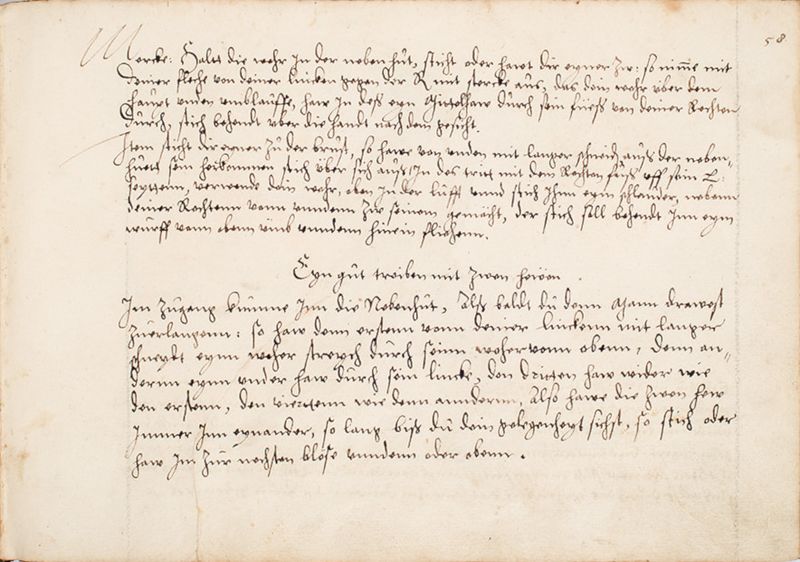 58
Mercke: Haltt die wehr In der nebenhut, sticht oder hawt dir eyner zu: so nimme mit
deiner fleche von deiner lincken gegen der R mit stercke aus, das dein wehr vber dem
haupt vnden vmblauffe, haw In deß eyn Mittelhaw durch sein fuess von deiner Rechten
durch, stich behendt vber die handt nach dem gesicht.
Item sticht dir eyner zu der brust, so hawe von vnden mit langer schneid auß der neben-
huett sein herkommen stich über sich auß, In des tritt mit dem Rechten fuß vff sein L:
seyttenn, verwende dein wehr, oben In der lufft vnnd stich Ihm eyn schlauder, nebenn
deiner Rechtenn vonn vnndenn zu seinem gemächt, der stich soll behendt Inn eym
wurff vonn obenn vmb vnndenn hinein fliehenn.
Eyn gut treiben mit zwen hewen.
Im zugang kumme Inn die Nebenhut, Alß baldt du denn Mann drawest
zuerlangenn: so haw denn erstenn vonn deiner linckenn mit langer
schneydt eynn weher streych durch seinn weher vonn obenn, denn an-
dernn eynn vnder haw durch sein lincke, den dritten haw wider wie
den erstenn, den vierttenn wie denn anndernn, Also hawe die zwen hew
Immer Inn eynander, so lang biß du dein gelegenheyt sichst, so stich oder
haw Im zur nechsten blöse vnndenn oder obenn.